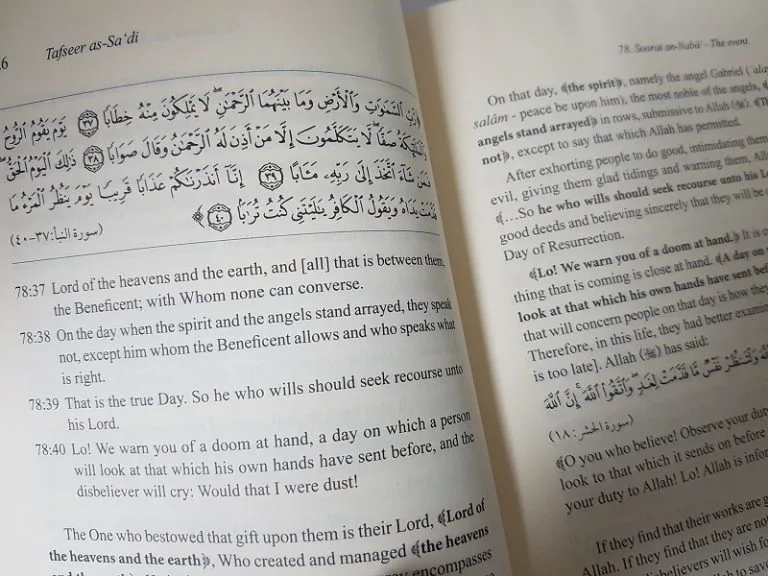 6
Tafseer as-Sa‘di
رَّبِّ السَّمَٰوَٰتِ وَالْأَرْضِ وَمَا بَيْنَهُمَا الرَّحْمَٰنِ ۖ لَا يَمْلِكُونَ مِنْهُ خِطَابًا ﴿٣٧﴾ يَوْمَ يَقُومُ الرُّوحُ
وَالْمَلَٰٓئِكَةُ صَفًّا ۖ لَّا يَتَكَلَّمُونَ إِلَّا مَنْ أَذِنَ لَهُ الرَّحْمَٰنُ وَقَالَ صَوَابًا ﴿٣٨﴾ ذَٰلِكَ الْيَوْمُ الْحَقُّ ۖ
فَمَن شَآءَ اتَّخَذَ إِلَىٰ رَبِّهِۦ مَـَٔابًا ﴿٣٩﴾ إِنَّآ أَنذَرْنَٰكُمْ عَذَابًا قَرِيبًا يَوْمَ يَنظُرُ الْمَرْءُ مَا
قَدَّمَتْ يَدَاهُ وَيَقُولُ الْكَافِرُ يَٰلَيْتَنِى كُنتُ تُرَٰبًۢا ﴿٤٠﴾
(سورة النبأ: ٣٧-٤٠)
78:37 Lord of the heavens and the earth, and [all] that is between them,
the Beneficent; with Whom none can converse.
78:38 On the day when the spirit and the angels stand arrayed, they speak
not, except him whom the Beneficent allows and who speaks what
is right.
78:39 That is the true Day. So he who wills should seek recourse unto
his Lord.
78:40 Lo! We warn you of a doom at hand, a day on which a person
will look at that which his own hands have sent before, and the
disbeliever will cry; Would that I were dust!
The One who bestowed that gift upon them is their Lord, ﴾Lord of
the heavens and the earth﴿, Who created and managed ﴾the heavens
encompasses
78. Soorat an-Naba’ – The event
On that day, ﴾the spirit﴿, namely the angel Gabriel (‘alayhi
salâm - peace be upon him), the most noble of the angels,
angels stand arrayed﴿ in rows, submissive to Allah (ﷻ). ﴾Th
not﴿, except to say that which Allah has permitted.
After exhorting people to do good, intimidating them
evil, giving them glad tidings and warning them, Alla
﴾...So he who wills should seek recourse unto his Lo
good deeds and believing sincerely that they will be
Day of Resurrection.
﴾Lo! We warn you of a doom at hand.﴿ It is c
thing that is coming is close at hand. ﴾A day on
look at that which his own hands have sent befor
that will concern people on that day is how they
Therefore, in this life, they had better examin
is too late]. Allah (ﷻ) has said:
وَلْتَنظُرْ نَفْسٌ مَّا قَدَّمَتْ لِغَدٍ ۖ وَاتَّقُوا اللَّهَ ۚ إِنَّ اللَّهَ
(سورة الحشر: ١٨)
﴾O you who believe! Observe your duty
look to that which it sends on before
your duty to Allah! Lo! Allah is infor
If they find that their works are g
Allah. If they find that they are not
disbelievers will wish fo